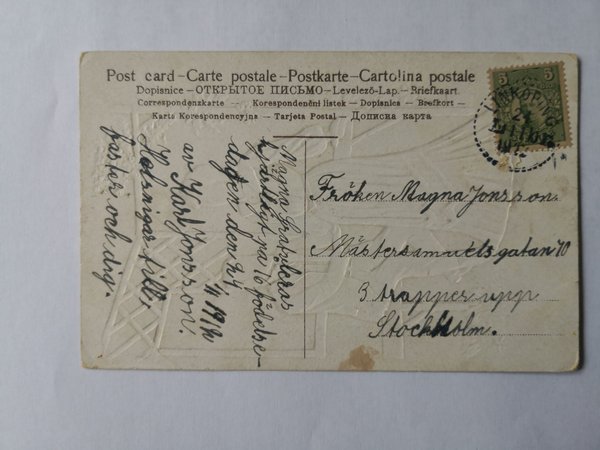 Post card – Carte postale – Postkarte – Cartolina postale
Dopisnice – ОТКРЫТОЕ ПИСЬМО – Levelező-Lap. – Briefkaart.
Correspondenzkarte – Korespondenční listek – Dopisnica – Brefkort –
Karta Korespondencyjna – Tarjeta Postal – Дописна карта
5 5
LINKÖPING
Magna Gratuleras
hjärtligt på 16 födelse-
dagen den 24/11 1912
av Karl Jonsson.
Helsnigar till,
faster och dig.
Fröken Magna Jonsson.
Mästersamuelsgatan 70
3 trappor upp
Stockholm.